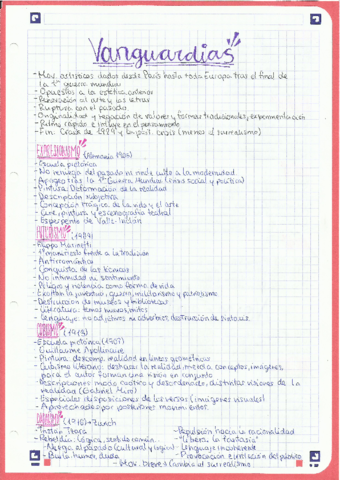 Vanguardias
- Mov. artísticos dados desde París hasta toda Europa tras el final de
la 1ª guerra mundial
- Opuestos a la estética anterior
- Renovación al arte y las letras
- Ruptura con el pasado
- Originalidad y negación de valores, formas tradicionales, experimentación
- Ritmo rápido e influye en el pensamiento
- Fin: Crack de 1929 y la post. crisis (menos el surrealismo)
EXPRESIONISMO (Alemania
- Escuela pictórica
- No reniega del pasado ni rinde culto a la modernidad
- Apogeo tras la 1ª Guerra Mundial (crisis social y política)
- Pintura: Deformación de la realidad
- Descripción subjetiva
- Concepción trágica de la vida y el arte
- Cine, pintura y escenografía teatral
- Esperpento de Valle-Inclán
FUTURISMO
- Filippo Marinetti
- 1º manifiesto frente a la tradición
- Antirromántico
- Conquista de las técnicas
- No intimidad ni sentimiento
- Peligro y violencia como forma de vida
- Exaltan la juventud, guerra, militarismo y patriotismo
- Destrucción de museos y bibliotecas
- Literatura: temas nuevos, mitos
- Lenguaje: no adjetivos ni adverbios, destrucción de sintaxis
CUBISMO (1913)
- Escuela pictórica (1907)
- Guillaume Apollinaire
- Pintura: descomp. realidad en líneas geométricas
- Cubismo literario: deshace la realidad, mezcla conceptos, imágenes,
para el autor forman una visión en conjunto
- Descripciones: modo caótico y desordenado, distintas visiones de la
realidad (Gabriel Miró)
- Especiales disposiciones de los versos (imágenes visuales)
- Aprovechados por posteriores movimientos
DADAÍSMO (1916) - Zurich
- Tristan Tzara
- Rebeldía: lógica, sentido común
- Niega el pasado (cultural y lógico)
- Burla, humor, duda
- Repulsión hacia la racionalidad
- "Libera la fantasía"
- Lenguaje incoherente
- Provocación e irritación del público
- Mov. breve → cambio al surrealismo